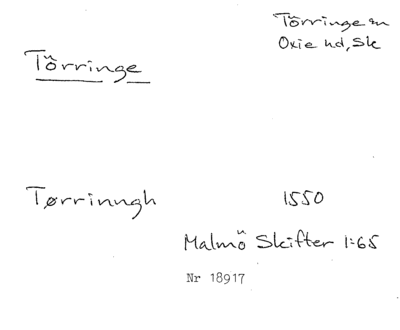 Törringe sn
Oxie hd, Sk
Törringe
Tørrinngh 1550
Malmö Skifter 1:65
Nr 18917